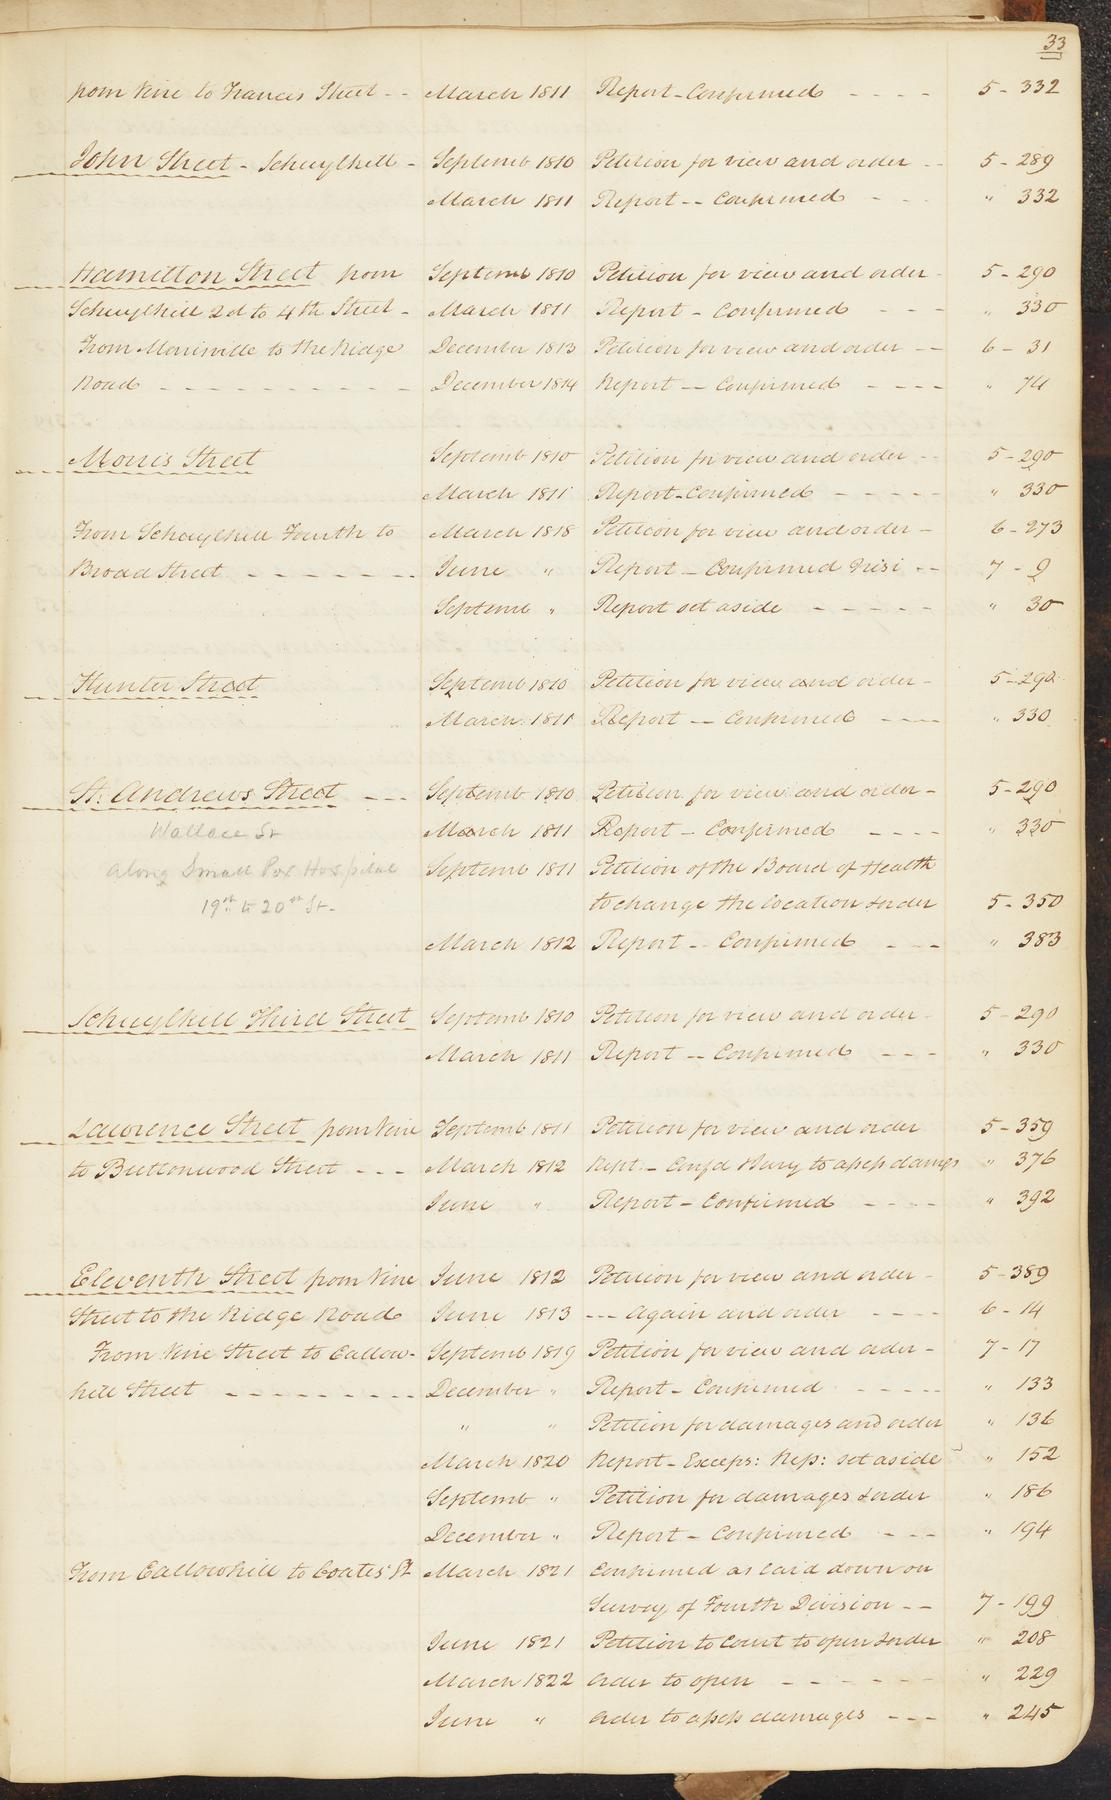 33
from Vine to Francis Street - - March 1811 Report - Confirmed - - - - 5 - 332
John Street - Schuylkill - Septemb 1810 Petition for view and order - - 5 - 289
March 1811 Report - - Confirmed - - - " 332
Hamilton Street from Septemb 1810 Petition for view and order - 5 - 290
Schuylkill 2d to 4th Street - March 1811 Report - Confirmed - - - " 330
From Morrisville to the Ridge December 1813 Petition for view and order - - 6 - 31
Road - - - - - - - - - - December 1814 Report - - Confirmed - - - - " 74
Morris Street Septemb 1810 Petition for view and order - - 5 - 290
March 1811 Report - Confirmed - - - - - " 330
From Schuylkill Fourth to March 1818 Petition for view and order - 6 - 273
Broad Street - - - - - - - June " Report - Confirmed Nisi - - 7 - 9
Septemb " Report set aside - - - - - " 30
Hunter Street Septemb 1810 Petition for view and order - 5 - 290
March 1811 Report - - Confirmed - - - - " 330
St. Andrews Street - - - Septemb 1810 Petition for view and order - 5 - 290
Wallace St March 1811 Report - Confirmed - - - - " 330
along Small Pox Hospital Septemb 1811 Petition of the Board of Health
19th to 20th St - to change the location & order 5 - 350
March 1812 Report - - Confirmed - - - " 383
Schuylkill Third Street Septemb 1810 Petition for view and order - 5 - 290
March 1811 Report - - Confirmed - - - " 330
Lawrence Street from Vine Septemb 1811 Petition for view and order 5 - 359
to Buttonwood Street - - - March 1812 Rept. - Confd & Jury to assess damgs " 376
June " Report - Confirmed - - - - " 392
Eleventh Street from Vine June 1812 Petition for view and order - 5 - 389
Street to the Ridge Road June 1813 - - - Again and order - - - - 6 - 14
From Vine Street to Callow- Septemb 1819 Petition for view and order - 7 - 17
hill Street - - - - - - - - - December " Report - Confirmed - - - - - " 133
" " Petition for damages and order " 136
March 1820 Report - Exceps: Rep: set aside " 152
Septemb " Petition for damages & order " 186
December " Report - Confirmed - - - " 194
From Callowhill to Coates' St March 1821 Confirmed as laid down on
Survey of Fourth Division - - 7 - 199
June 1821 Petition to Court to open & order " 208
March 1822 Order to open - - - - - - " 229
June " Order to assess damages - - - " 245